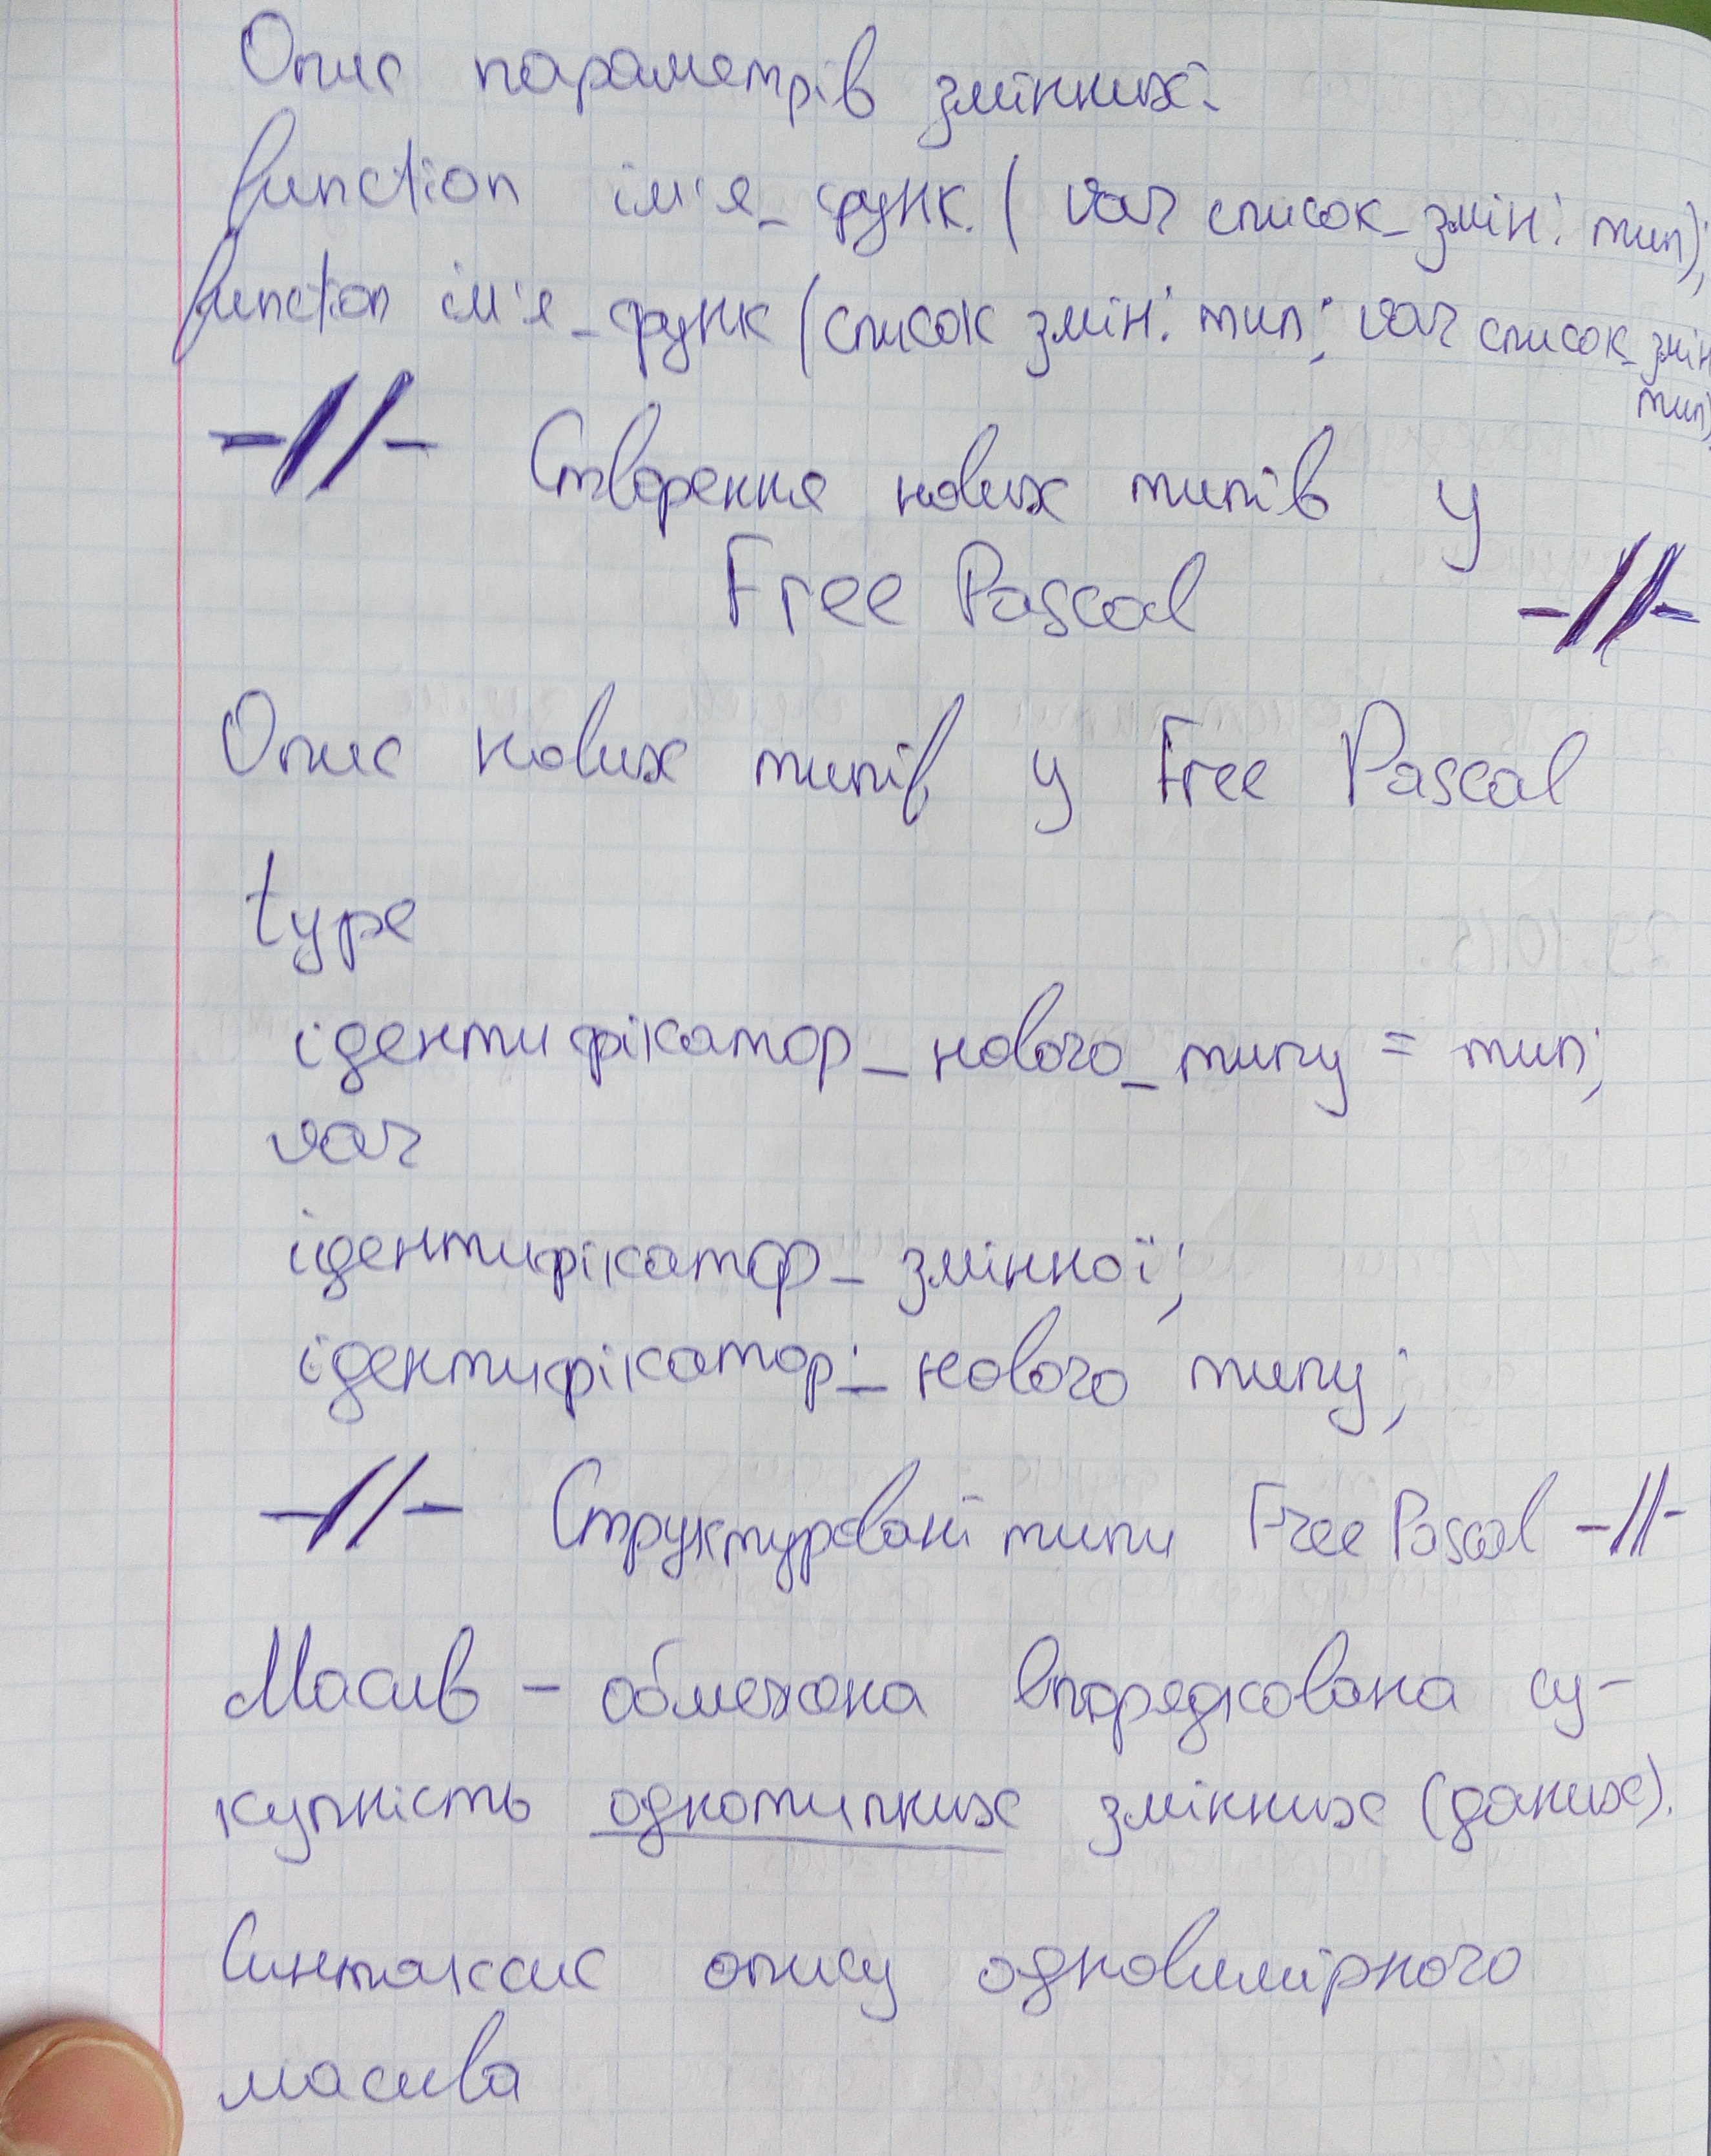 Опис параметрів змінних:
function ім'я_функ. ( var список_змін: тип);
function ім'я_функ (список змін: тип; var список_змін
тип)
-//- Створення нових типів у
Free Pascal -//-
Опис нових типів у Free Pascal
type
ідентифікатор_нового_типу = тип;
var
ідентифікатор_змінної;
ідентифікатор:_нового типу;
-//- Структуровані типи Free Pascal -//-
Масив - обмежена впорядкована су-
купність однотипних змінних (даних).
Синтаксис опису одновимірного
масива